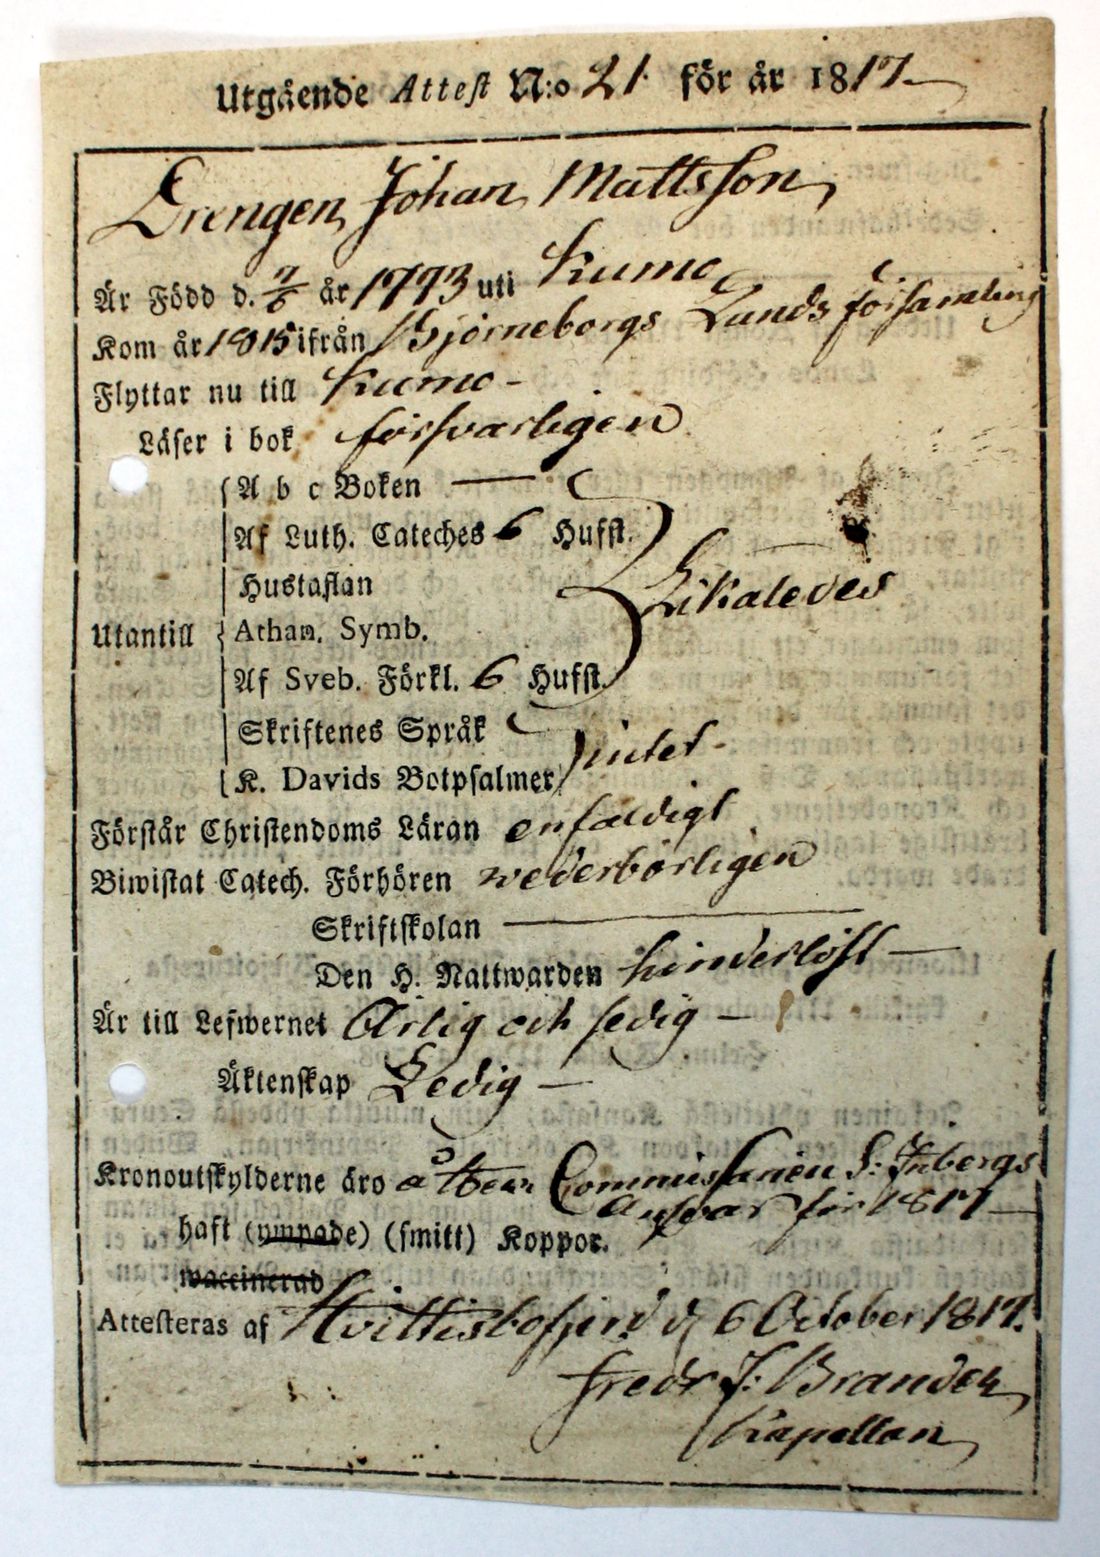 Utgående Attest N:o 21. för år 1817
Drengen Johan Mattsson
Är Född d. 7/6 år 1793 uti Kumo
Kom år 1815 ifrån Björneborgs Lands församling
Flyttar nu till Kumo -
Läser i bok försvarligen
A b c Boken —
Af Luth. Cateches 6 Hufst.
Hustaflan
Likaledes
Utantill Athan. Symb.
Af Sveb. Förkl. 6 Hufst.
Skriftenes Språk
intet -
K. Davids Botpsalmer
Förstår Christendoms Läran enfaldigt
Biwistat Catech. Förhören wederbörligen
Skriftskolan —
Den H. Nattwarden hinderlöst —
Är till Lefwernet Ärlig och sedig —
Äktenskap Ledig —
Kronoutskylderne äro Commissarien S: Inbergs
Answar för 1817 —
haft (ympade) (smitt) Koppor.
waccinerad
Attesteras af Hvittisbofjerd d 6 October 1817.
Fredr J: Brander
Kapellan